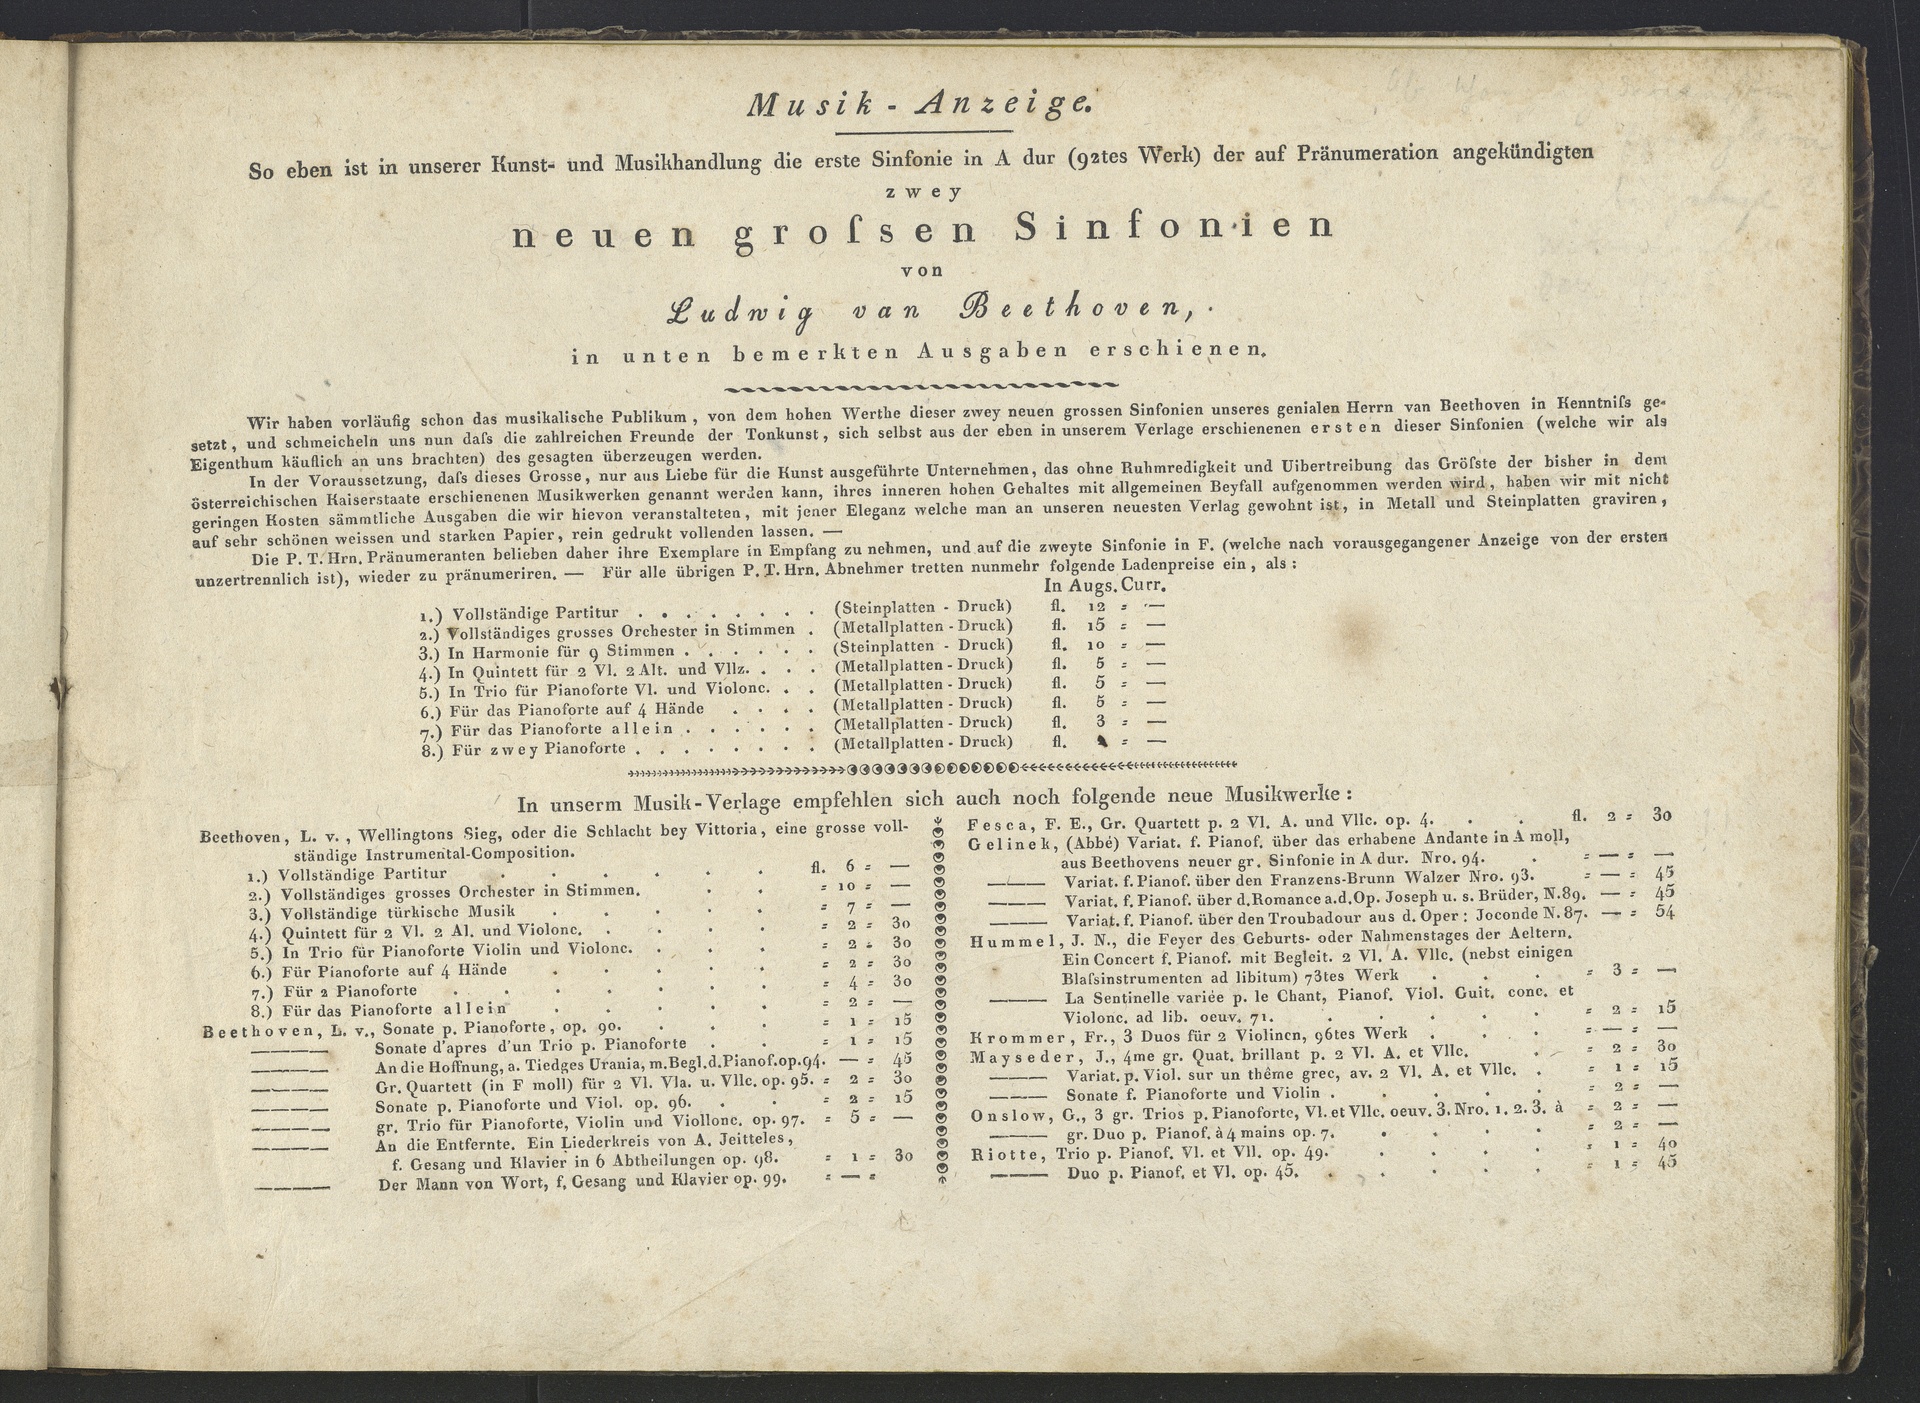 Musik - Anzeige.
So eben ist in unserer Kunst- und Musikhandlung die erste Sinfonie in A dur (92tes Werk) der auf Pränumeration angekündigten
zwey
neuen groſsen Sinfonien
von
Ludwig van Beethoven,
in unten bemerkten Ausgaben erschienen.
Wir haben vorläufig schon das musikalische Publikum, von dem hohen Werthe dieser zwey neuen grossen Sinfonien unseres genialen Herrn van Beethoven in Kenntniſs ge-
setzt, und schmeicheln uns nun daſs die zahlreichen Freunde der Tonkunst, sich selbst aus der eben in unserem Verlage erschienenen ersten dieser Sinfonien (welche wir als
Eigenthum käuflich an uns brachten) des gesagten überzeugen werden.
In der Voraussetzung, daſs dieses Grosse, nur aus Liebe für die Kunst ausgeführte Unternehmen, das ohne Ruhmredigkeit und Uibertreibung das Gröſste der bisher in dem
österreichischen Kaiserstaate erschienenen Musikwerken genannt werden kann, ihres inneren hohen Gehaltes mit allgemeinen Beyfall aufgenommen werden wird, haben wir mit nicht
geringen Kosten sämmtliche Ausgaben die wir hievon veranstalteten, mit jener Eleganz welche man an unseren neuesten Verlag gewohnt ist, in Metall und Steinplatten graviren,
auf sehr schönen weissen und starken Papier, rein gedrukt vollenden lassen. —
Die P. T. Hrn. Pränumeranten belieben daher ihre Exemplare in Empfang zu nehmen, und auf die zweyte Sinfonie in F. (welche nach vorausgegangener Anzeige von der ersten
unzertrennlich ist), wieder zu pränumeriren. — Für alle übrigen P. T. Hrn. Abnehmer tretten nunmehr folgende Ladenpreise ein, als:
In Augs. Curr.
1.) Vollständige Partitur . . . . . . . . (Steinplatten - Druck) fl. 12 = —
2.) Vollständiges grosses Orchester in Stimmen . (Metallplatten - Druck) fl. 15 = —
3.) In Harmonie für 9 Stimmen . . . . . . (Steinplatten - Druck) fl. 10 = —
4.) In Quintett für 2 Vl. 2 Alt. und Vllz. . . . (Metallplatten - Druck) fl. 5 = —
5.) In Trio für Pianoforte Vl. und Violonc. . . (Metallplatten - Druck) fl. 5 = —
6.) Für das Pianoforte auf 4 Hände . . . . (Metallplatten - Druck) fl. 5 = —
7.) Für das Pianoforte allein . . . . . . (Metallplatten - Druck) fl. 3 = —
8.) Für zwey Pianoforte . . . . . . . . (Metallplatten - Druck) fl. = —
In unserm Musik-Verlage empfehlen sich auch noch folgende neue Musikwerke:
Beethoven, L. v., Wellingtons Sieg, oder die Schlacht bey Vittoria, eine grosse voll-
ständige Instrumental-Composition.
1.) Vollständige Partitur . . . . . fl. 6 = —
2.) Vollständiges grosses Orchester in Stimmen. . . = 10 = —
3.) Vollständige türkische Musik . . . . . = 7 = —
4.) Quintett für 2 Vl. 2 Al. und Violonc. . . . . = 2 = 30
5.) In Trio für Pianoforte Violin und Violonc. . . . = 2 = 30
6.) Für Pianoforte auf 4 Hände . . . . . = 2 = 30
7.) Für 2 Pianoforte . . . . . . = 4 = 30
8.) Für das Pianoforte allein . . . . . = 2 = —
Beethoven, L. v., Sonate p. Pianoforte, op. 90. . . . = 1 = 15
——— Sonate d'apres d'un Trio p. Pianoforte . . = 1 = 15
——— An die Hoffnung, a. Tiedges Urania, m. Begl. d. Pianof. op. 94. — = 45
——— Gr. Quartett (in F moll) für 2 Vl. Vla. u. Vllc. op. 95. = 2 = 30
——— Sonate p. Pianoforte und Viol. op. 96. . . . = 2 = 15
——— gr. Trio für Pianoforte, Violin und Viollonc. op. 97. = 5 = —
——— An die Entfernte. Ein Liederkreis von A. Jeitteles,
f. Gesang und Klavier in 6 Abtheilungen op. 98. = 1 = 30
——— Der Mann von Wort, f. Gesang und Klavier op. 99. = — =
Fesca, F. E., Gr. Quartett p. 2 Vl. A. und Vllc. op. 4. . . fl. 2 = 30
Gelinek, (Abbé) Variat. f. Pianof. über das erhabene Andante in A moll,
aus Beethovens neuer gr. Sinfonie in A dur. Nro. 94. . = — = —
——— Variat. f. Pianof. über den Franzens-Brunn Walzer Nro. 93. = — = 45
——— Variat. f. Pianof. über d. Romance a. d. Op. Joseph u. s. Brüder, N. 89. — = 45
——— Variat. f. Pianof. über den Troubadour aus d. Oper: Joconde N. 87. — = 54
Hummel, J. N., die Feyer des Geburts- oder Nahmenstages der Aeltern.
Ein Concert f. Pianof. mit Begleit. 2 Vl. A. Vllc. (nebst einigen
Blaſsinstrumenten ad libitum) 73tes Werk . . . = 3 = —
——— La Sentinelle variée p. le Chant, Pianof. Viol. Guit. conc. et
Violonc. ad lib. oeuv. 71. . . . . . = 2 = 15
Krommer, Fr., 3 Duos für 2 Violinen, 96tes Werk . . . = — = —
Mayseder, J., 4me gr. Quat. brillant p. 2 Vl. A. et Vllc. . = 2 = 30
——— Variat. p. Viol. sur un thême grec, av. 2 Vl. A. et Vllc. . = 1 = 15
——— Sonate f. Pianoforte und Violin . . . . . = 2 = —
Onslow, G., 3 gr. Trios p. Pianoforte, Vl. et Vllc. oeuv. 3. Nro. 1. 2. 3. à = 2 = —
——— gr. Duo p. Pianof. à 4 mains op. 7. . . . . = 2 = —
Riotte, Trio p. Pianof. Vl. et Vll. op. 49. . . . . = 1 = 40
——— Duo p. Pianof. et Vl. op. 45. . . . . . = 1 = 45